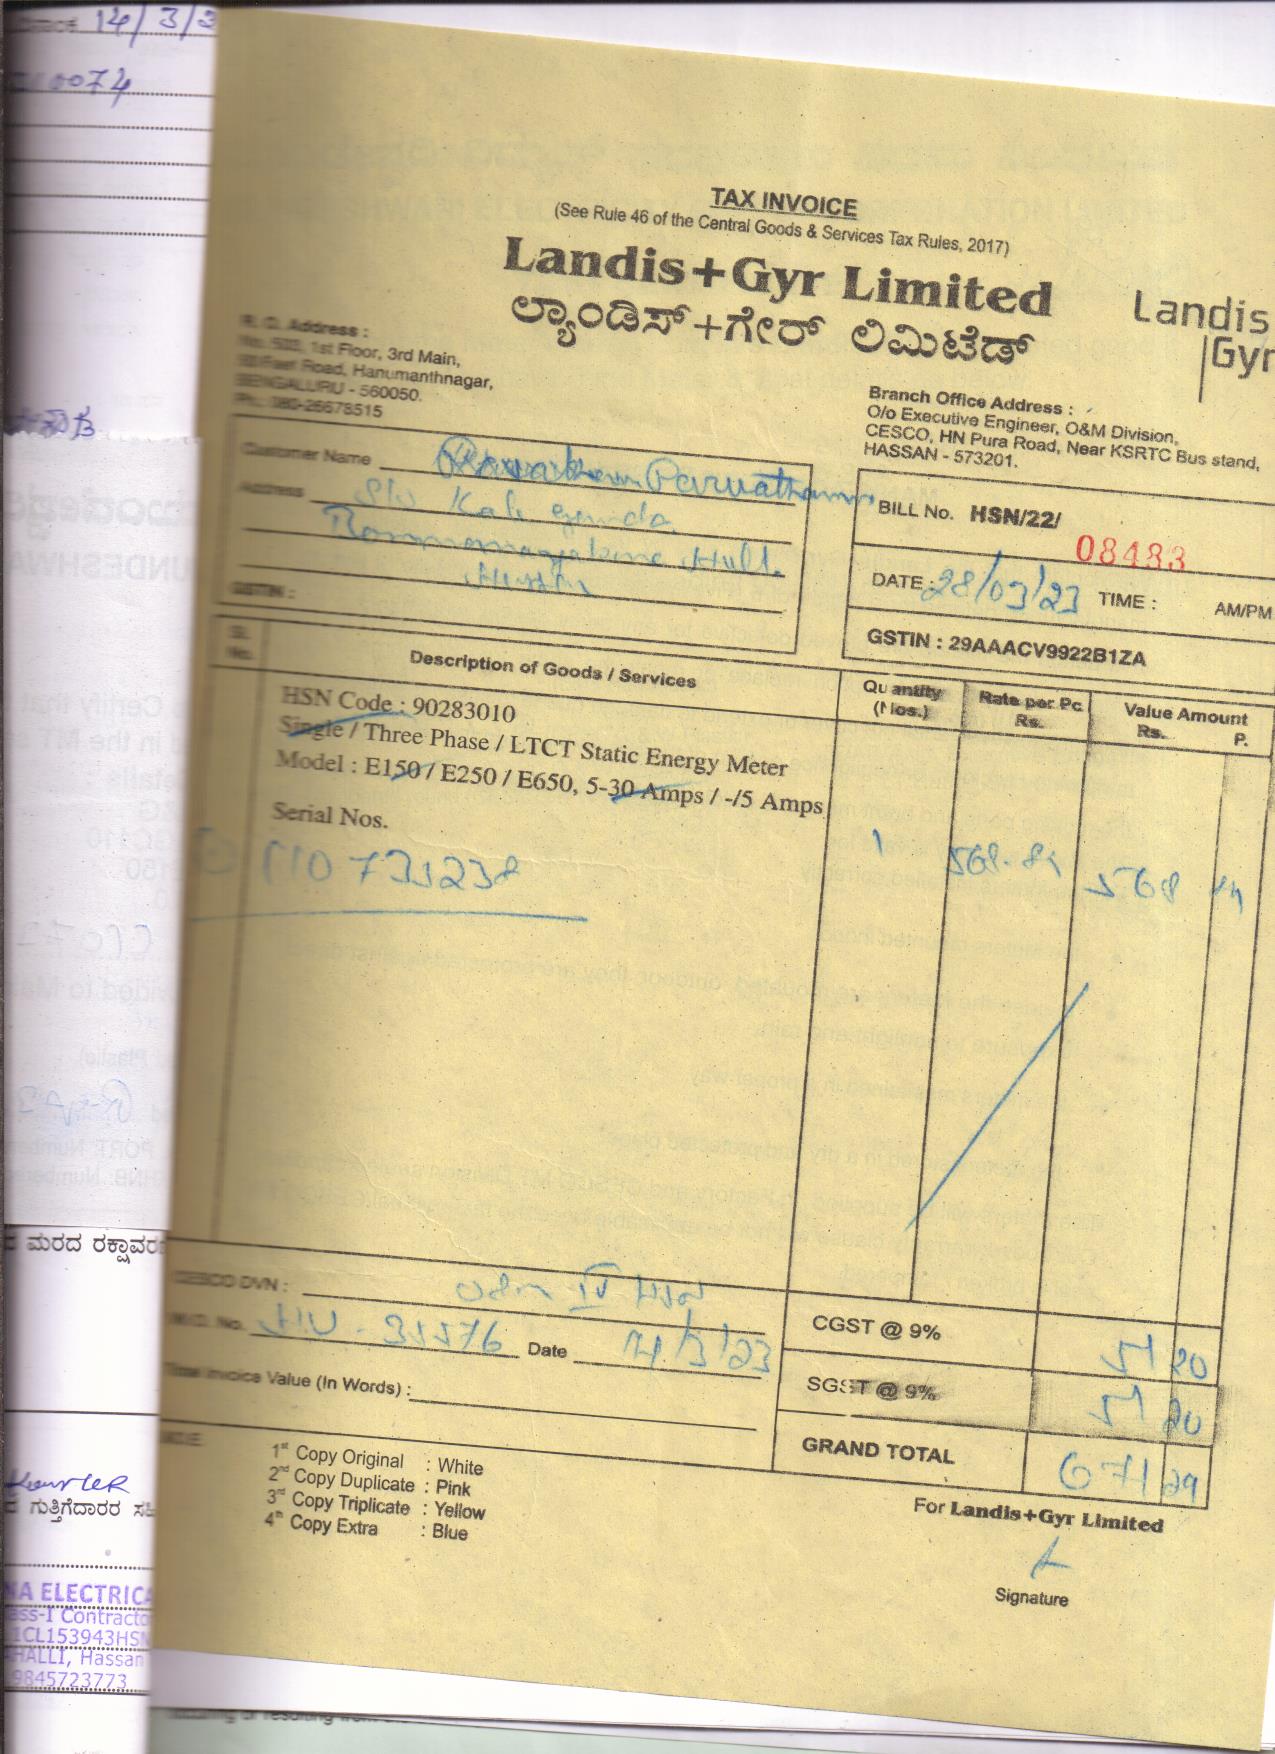 14/3/2
0074
TAX INVOICE
(See Rule 46 of the Central Goods & Services Tax Rules, 2017)
Landis+Gyr Limited
ಲ್ಯಾಂಡಿಸ್+ಗೇರ್ ಲಿಮಿಟೆಡ್
Landis
Gyr
R. O. Address :
No. 503, 1st Floor, 3rd Main,
80 Feet Road, Hanumanthnagar,
BENGALURU - 560050.
Ph.: 080-26678515
Branch Office Address :
O/o Executive Engineer, O&M Division,
CESCO, HN Pura Road, Near KSRTC Bus stand,
HASSAN - 573201.
Customer Name Parvathamma
Address S/o Kale gowda
GSTIN :
BILL No. HSN/22/
08483
DATE : 28/03/23 TIME : AM/PM
GSTIN : 29AAACV9922B1ZA
Sl. No. Description of Goods / Services Quantity (Nos.) Rate per Pc. Rs. Value Amount Rs. P.
HSN Code : 90283010
Single / Three Phase / LTCT Static Energy Meter
Model : E150 / E250 / E650, 5-30 Amps / -/5 Amps
Serial Nos.
1 568
568
CESCO DVN :
W.O. No. 31576 Date 14/3/23
Total Invoice Value (In Words) :
CGST @ 9% 51 20
SGST @ 9% 51 20
GRAND TOTAL 671 29
NOTE
1st Copy Original : White
2nd Copy Duplicate : Pink
3rd Copy Triplicate : Yellow
4th Copy Extra : Blue
For Landis+Gyr Limited
Signature
ಮರದ ರಕ್ಷಾವರಣ
ಗುತ್ತಿಗೆದಾರರ ಸಹಿ
NA ELECTRICA
ass-I Contractor
1CL153943HSN
AHALLI, Hassan
9845723773